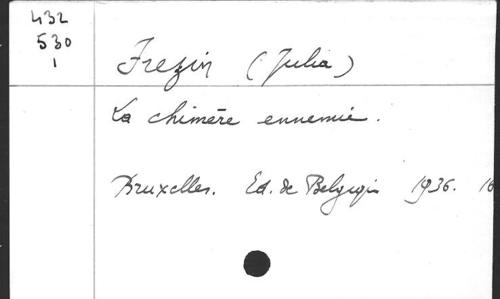 432
530
1
Frezin (Julia)
La chimère ennemie.
Bruxelles. Ed. de Belgique 1936. 16